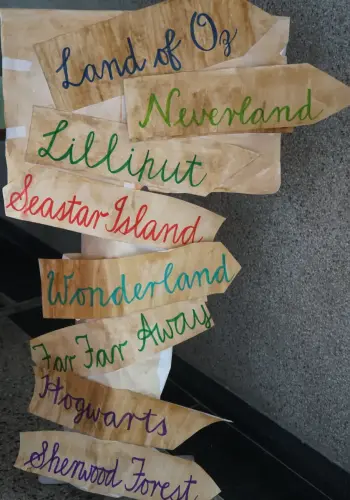 Land of Oz
Neverland
Lilliput
Seastar Island
Wonderland
Far Far Away
Hogwarts
Sherwood Forest